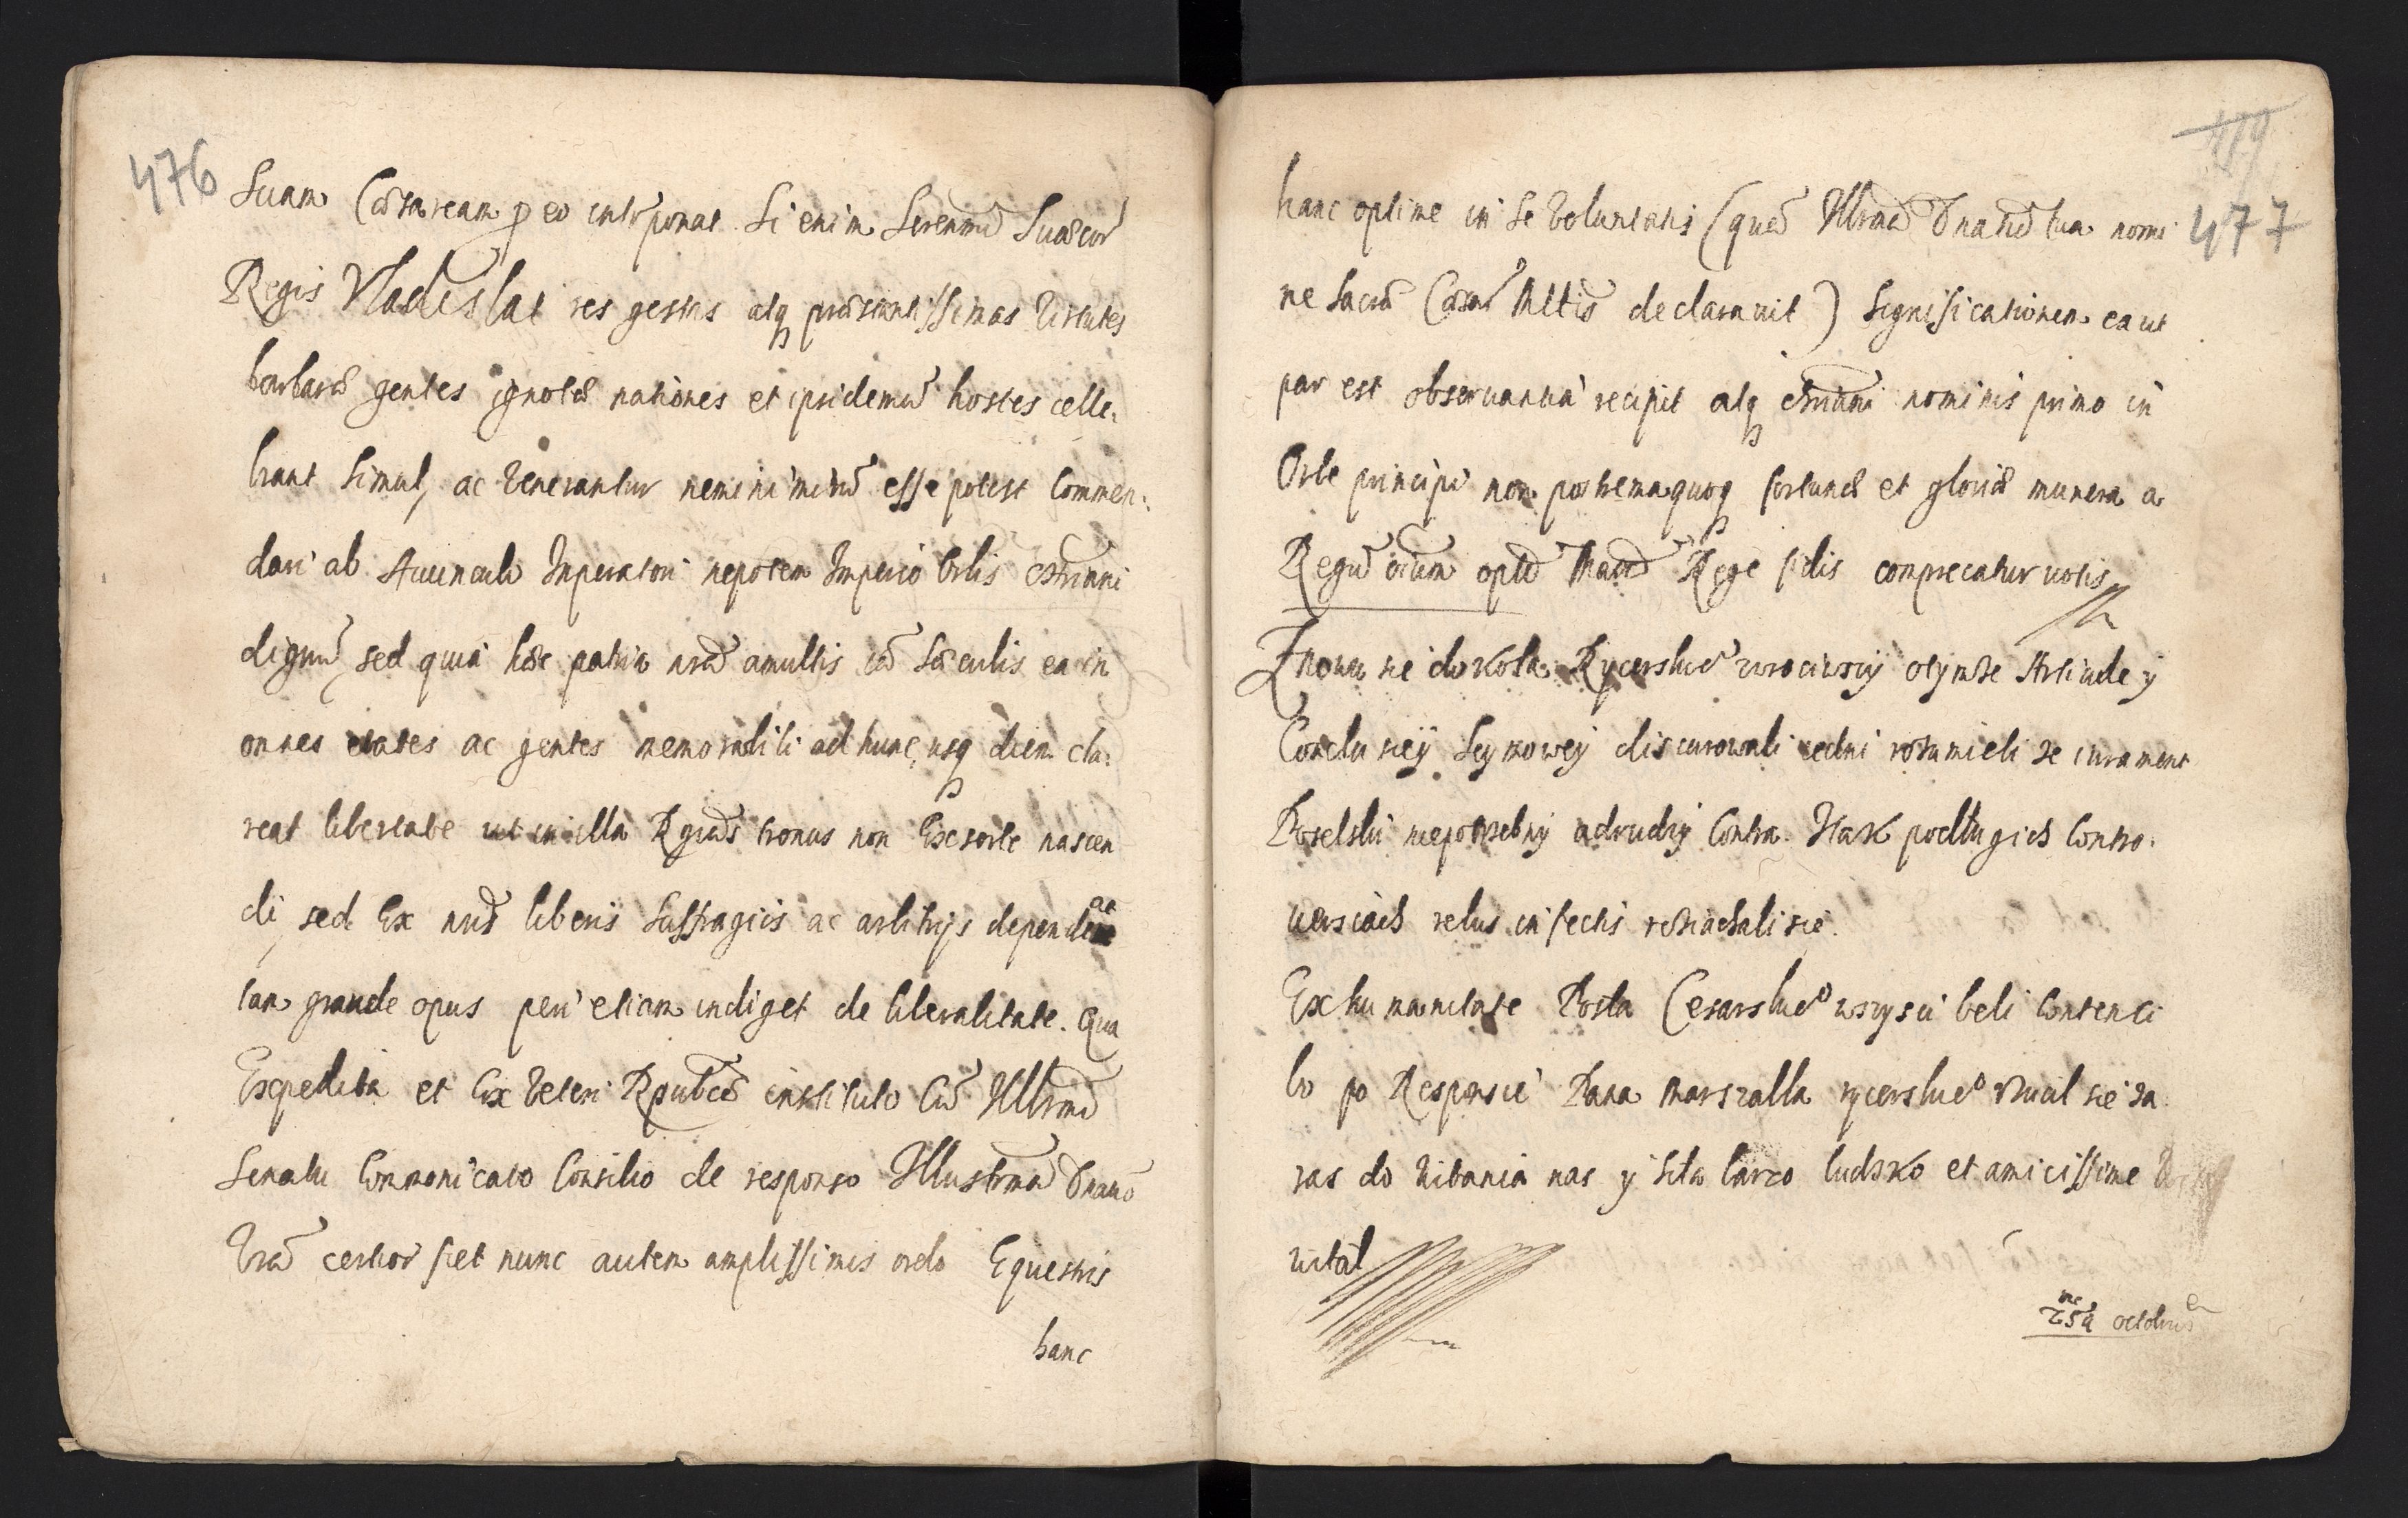 476
Suam Cæsaream p eo interponat. Si enim Serenmi Suæcor
Regis Vladislai res gestas atq præstantissimas virtutes
barbaræ gentes ignotæ nationes et ipsi demũ hostes cele-
brant simul, ac venerantur nemini mirũ esse potest Commen-
dari ab Auunculo Inperatori nepotem Imperio Orbis Christiani
dignũ, sed quia hæc patria nrã a multis iã Sæculis ea in
onnes etates ac gentes memorabili ad hunc usq diem cla-
reat libertate ut in illa Rgũs tronus non Ex sorte nascen
di, sed Ex nris liberis Suffragiis ac arbitrijs dependeat
tam grande opus pari etiam indiget de liberalitate. Qua
Expedita et Ex veteri Rpubcæ instituto Cũ Illrmo
Senatu Commonicato Consilio de responso Illustrma Dnatio
Vrã certior fiet nunc autem amplissimus ordo Equestris
hanc
479
477
hanc optime in Se voluntatis (quã Illrma Dnatio tua nomi
ne Sacræ Cæsar Mttis declarauit) Significationem ea ut
par est obseruantia recipit atq christiani nominis primo in
Orbe principi non postrema quoq fortunæ et gloriæ munera a
Regũ oium opto Maxo Rege fidis comprecatur uotis
Znowu sie do Koła Rycerskiego wrociwszy o tymze Articule y
Conclusiej Seymowey discurowali iedni rozumieli ze iurament
Poselski niepotrzebny a drudzy Contra. Y tak po długich Contro-
uersiach rebus infectis roziachali sie.
Ex humanitate Posła Cesarskiego wszyscy beli Contenci
bo po Responsie Pana Marszałka rycerskiego rzucił sie za
ras do witania nas y siła barzo ludzko et amicissime
witał
25ta octobris